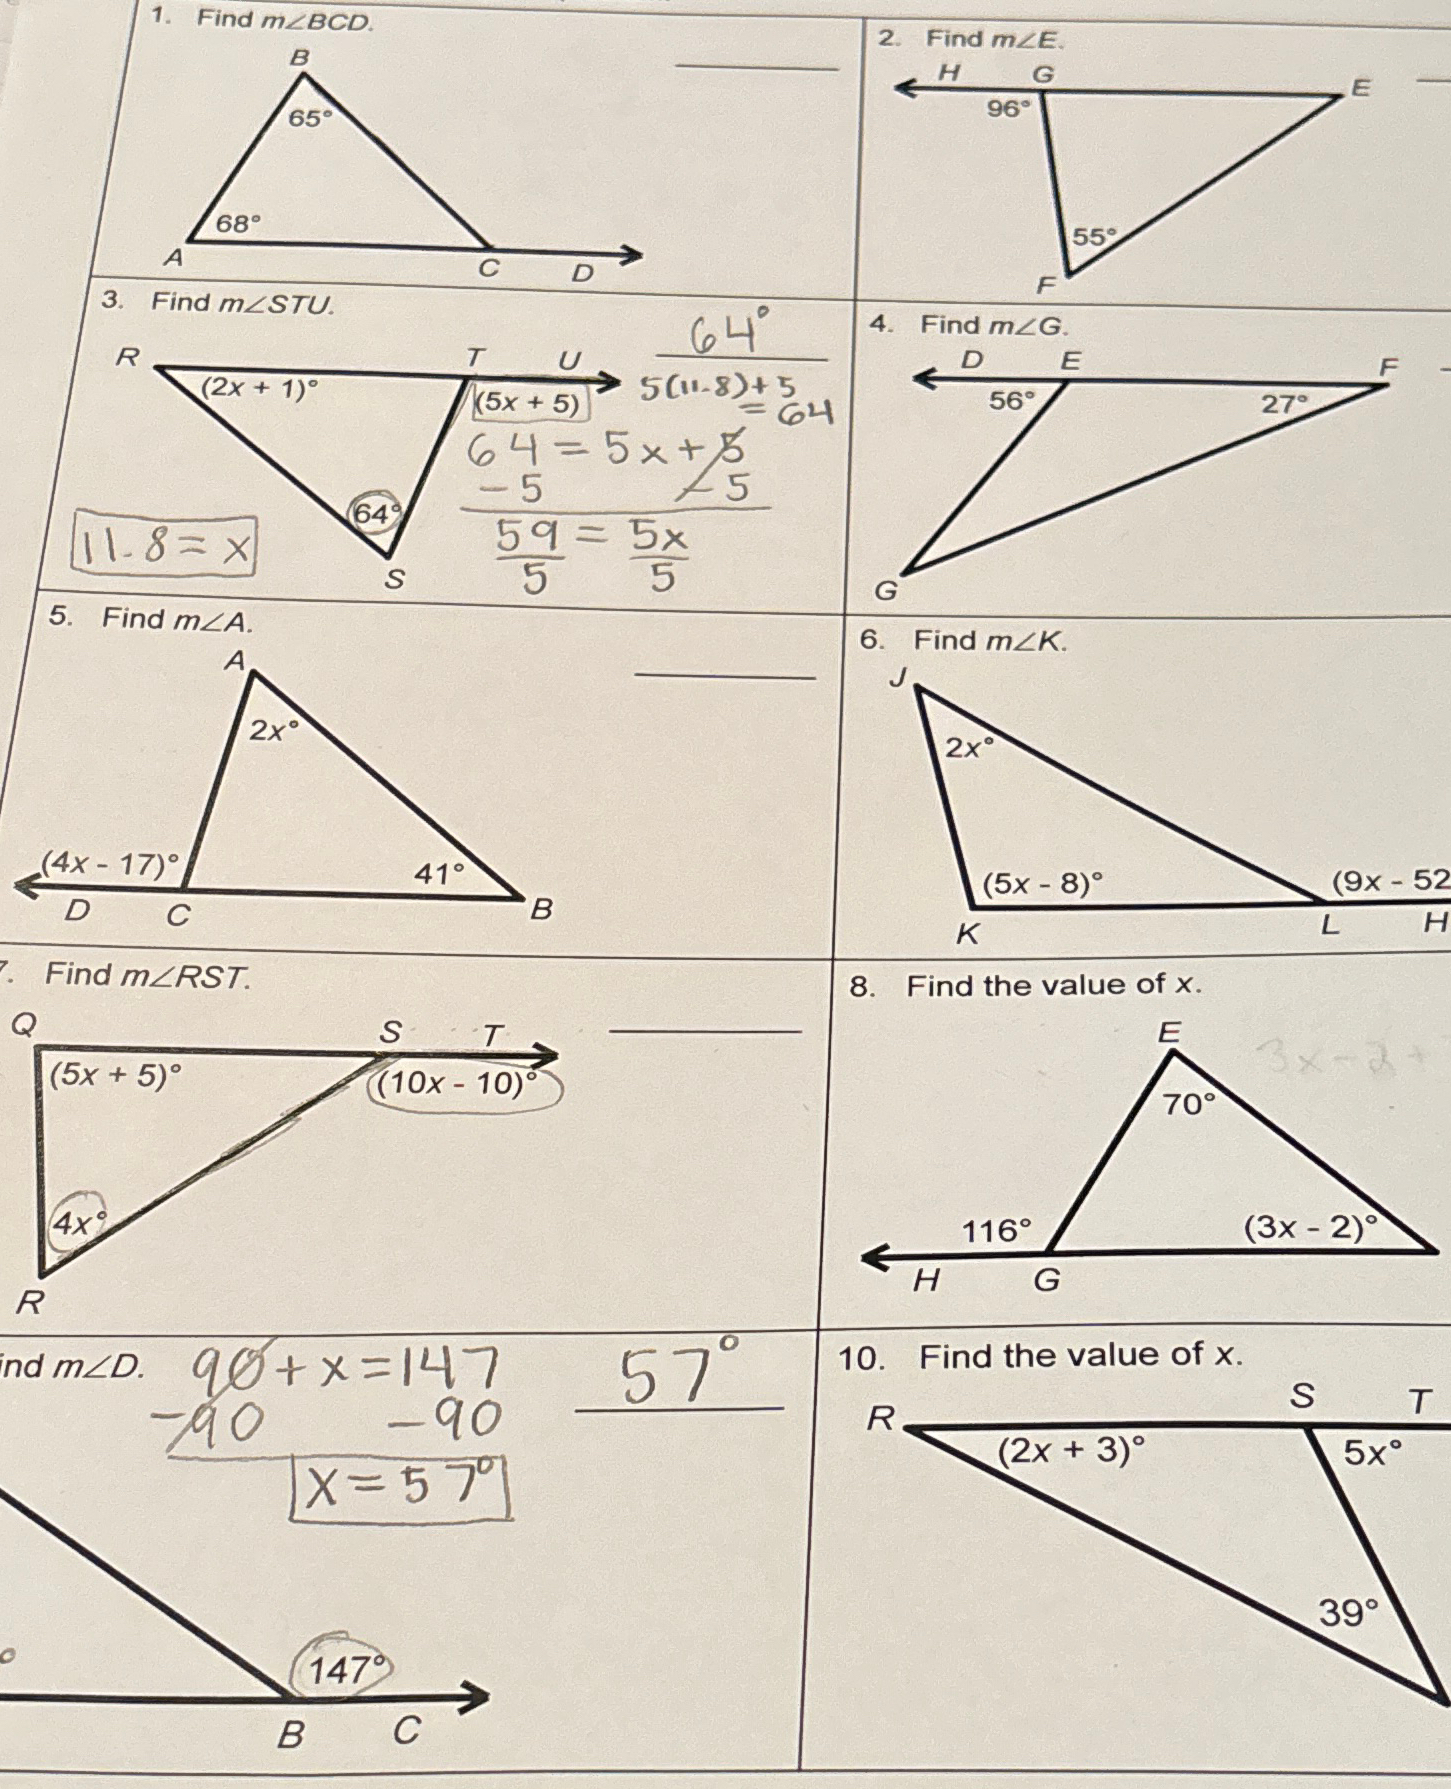 1. Find m∠BCD.
B
65°
68°
A
C
D
2. Find m∠E.
H
G
E
96°
55°
F
3. Find m∠STU.
64°
R
T
U
(2x + 1)°
(5x + 5)
5(11.8)+5
= 64
64 = 5x + 5
- 5 - 5
59 = 5x
5 5
64°
11.8 = x
S
4. Find m∠G.
D
E
F
56°
27°
G
5. Find m∠A.
A
2x°
(4x - 17)°
41°
D
C
B
6. Find m∠K.
J
2x°
(5x - 8)°
(9x - 52
K
L
H
7. Find m∠RST.
Q
S
T
(5x + 5)°
(10x - 10)°
4x°
R
8. Find the value of x.
E
3x - 2 +
70°
116°
(3x - 2)°
H
G
ind m∠D.
90 + x = 147
57°
-90 -90
x = 57°
147°
B
C
10. Find the value of x.
R
S
T
(2x + 3)°
5x°
39°